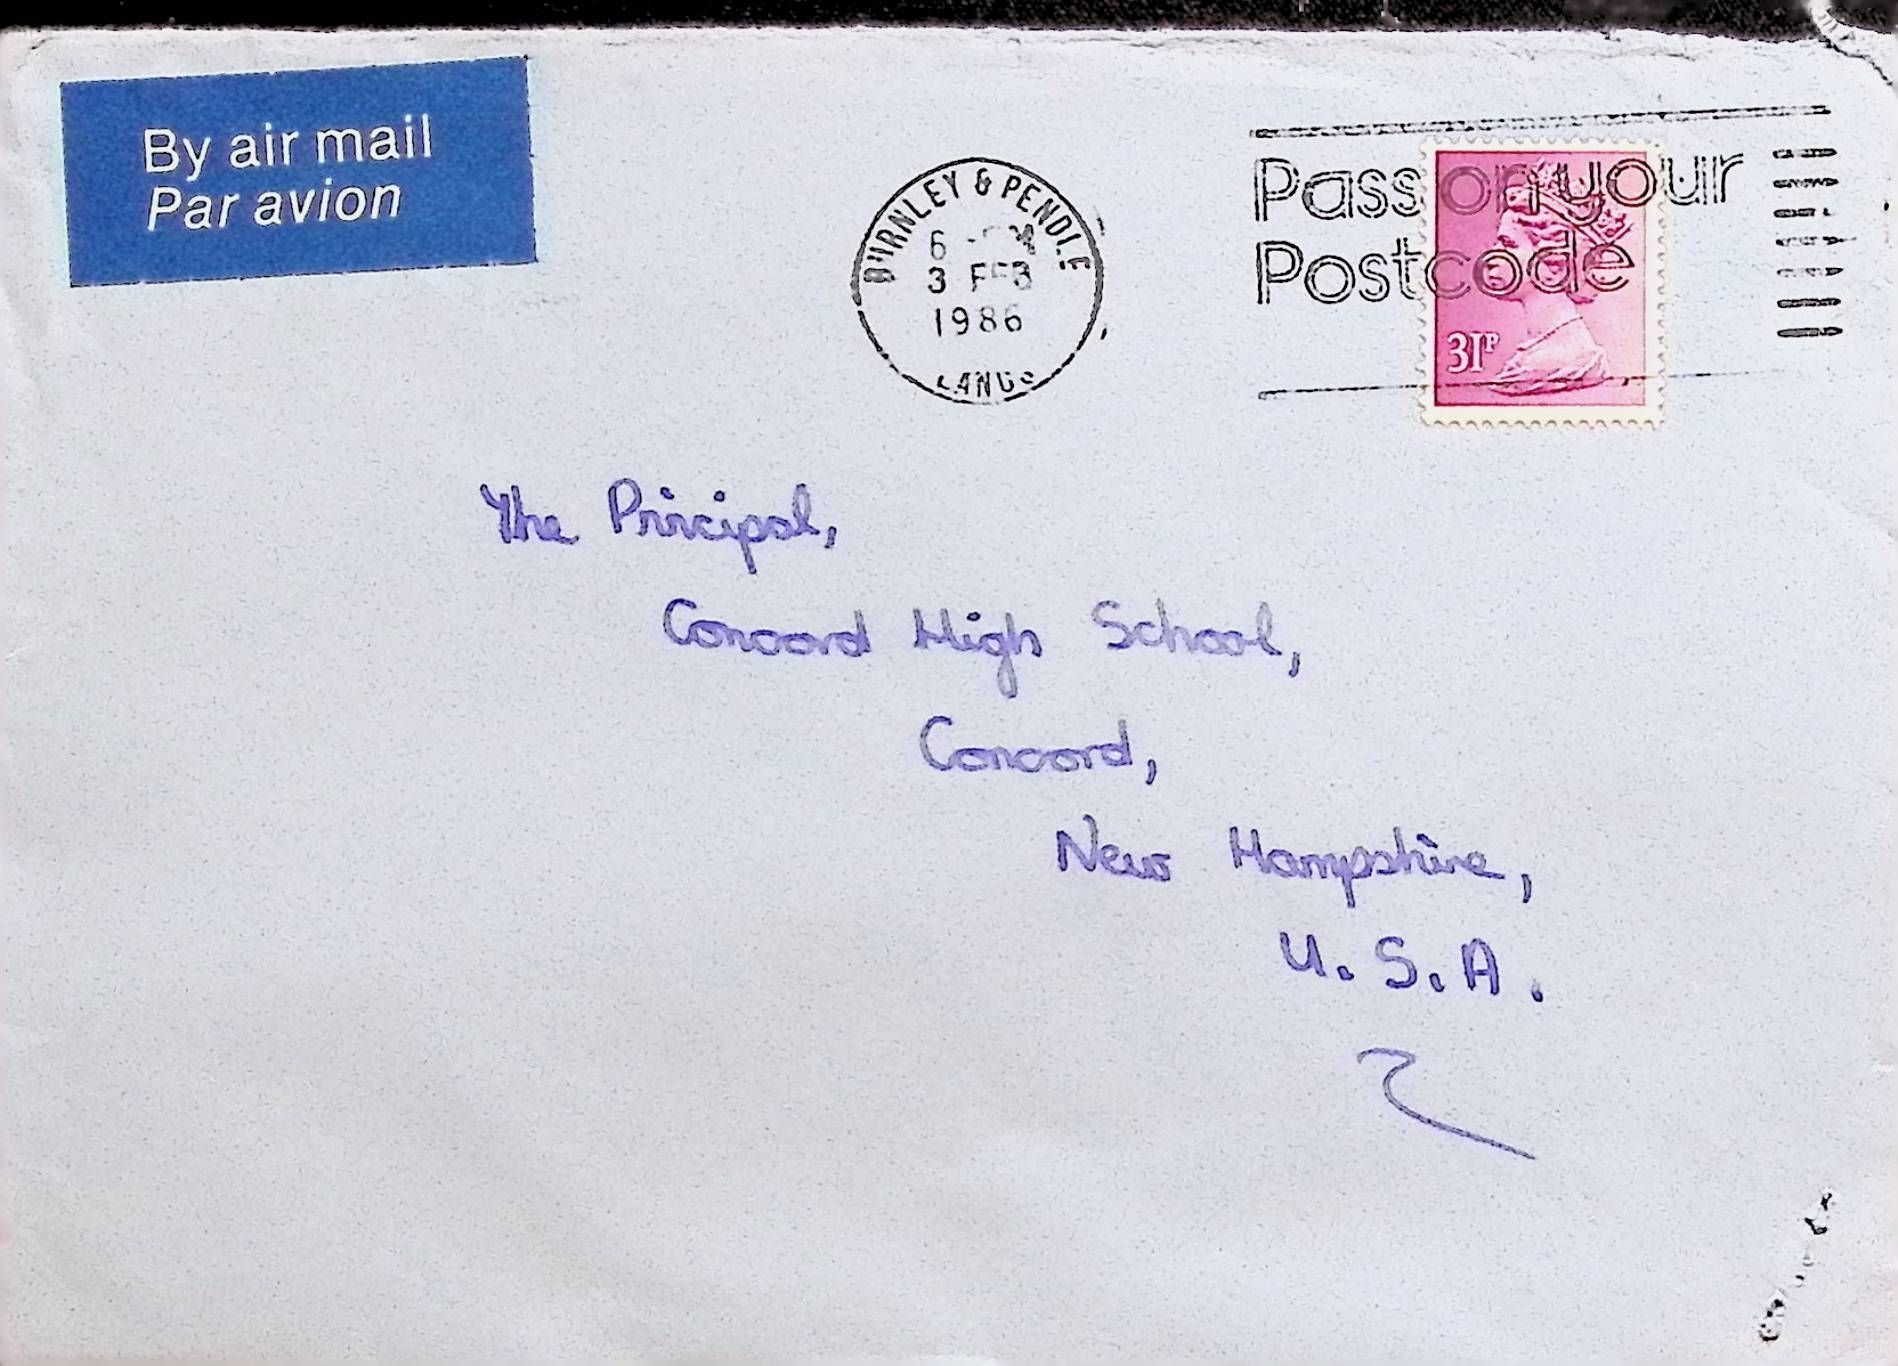 By air mail
Par avion
BURNLEY & PENDLE
6
3 FEB
1986
LANCS
Pass on your
Postcode
31P
The Principal,
Concord High School,
Concord,
New Hampshire,
U.S.A.